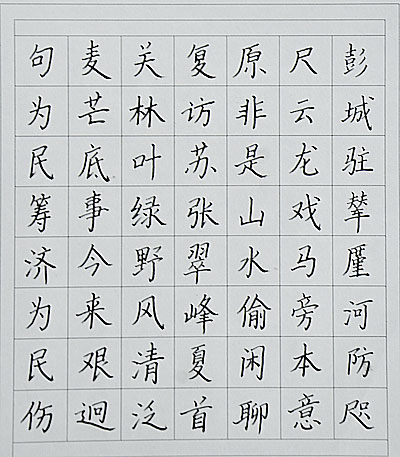 彭城驻辇厪河防咫
尺云龙戏马旁本意
原非是山水偷闲聊
复访苏张翠峰夏首
关林叶绿野风清泛
麦芒底事今来艰迥
句为民筹济为民伤